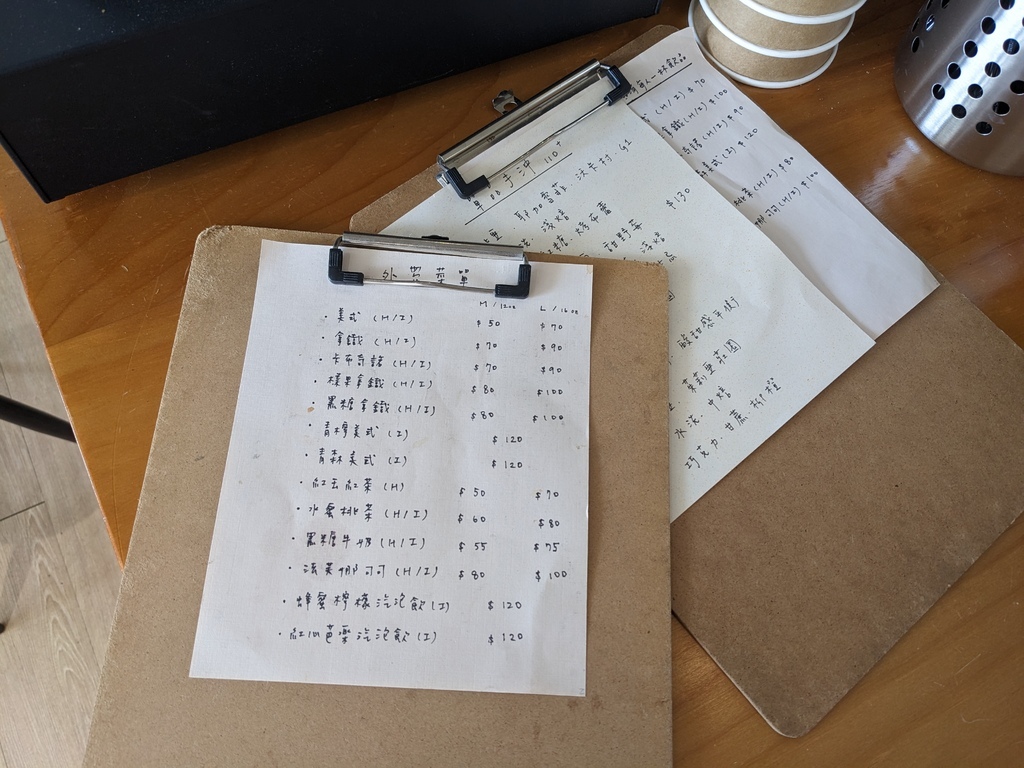 外帶菜單
M / 12oz L / 16oz
· 美式 (H/I) $50 $70
· 拿鐵 (H/I) $70 $90
· 卡布奇諾 (H/I) $70 $90
· 榛果拿鐵 (H/I) $80 $100
· 黑糖拿鐵 (H/I) $80 $100
· 青檸美式 (I) $120
· 青森美式 (I) $120
· 紅玉紅茶 (H) $50 $70
· 水蜜桃茶 (H/I) $60 $80
· 黑糖牛奶 (H/I) $55 $75
· 法芙娜可可 (H/I) $80 $100
· 蜂蜜檸檬汽泡飲 (I) $120
· 紅心芭樂汽泡飲 (I) $120
單品手沖 110↑
耶加雪菲 沃卡村. G1
淺焙
$130
酸甜感平衡
莊園
水洗. 中焙
巧克力. 甘蔗. 柳橙
每人一杯飲品
(H/I) $70
拿鐵 (H/I) $100
(H/I) $90
美式 (I) $120
(H/I) $80
(H/I) $100